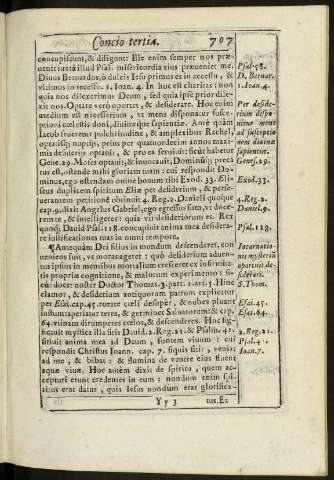 Concio tertia. 707
concupiscunt, & diligunt: Ille enim semper nos præ-
uenit iuxta illud Psal. misericordia eius præueniet me.
Diuus Bernardos, ò dulcis Iesu primus es in accessu, &
vltimus in recessu. 1. Ioan. 4. In hoc est charitas: non
quia nos dilexerimus Deum, sed quia ipse prior dile-
xit nos. Optare verò oportet, & desiderare. Hoc enim
medium est necessarium, vt mens disponatur susce-
ptioni cœlestis doni, diuinæque sapientiæ. Ante quàm
Iacob frueretur pulchritudine, & amplexibus Rachel,
optauit; nupsit, prius per quatuordecim annos maxi-
mis desiderijs optauit, & pro ea seruisse sicut habetur
Gene. 29. Moses optauit, & inuocauit, Dominũque preca
tus est, ostende mihi gloriam tuam: cui respondit Do-
minus, ego ostendam omne bonum tibi Exod. 33. Eli-
seus duplicem spiritum Eliæ per desiderium, & perse-
uerantem petitionē obtinuit 4. Reg. 2. Danieli quoque
cap. 9. dixit Angelus Gabriel, ego egressus sum, vt doce-
rem te, & intelligeres: quia vir desideriorum es. Rex
quoq; Dauid Psal. 118. concupiuit anima mea desidera-
re iustificationes tuas in omni tempore.
¶Antequàm Dei filius in mundum descenderet, con
ueniens fuit, vt moraretur: quò desiderium aduen-
tus ipsius in mentibus mortalium cresceret ex infirmita-
tis propriæ cognitione, & malorum experimento: si-
cut docet noster Doctor Thomas. 3. part. 1. art. 5. Hinc
clamor, & desiderium antiquorum patrum explicatur
per Esai. cap. 47. rorate cœli desuper, & nubes pluant
iustum: aperiatur terra, & germinet Saluatorem: & cap.
64. vtinam dirumperes cœlos, & descenderes. Hoc sig-
nificauit mystica illa sitis Dauid. 2. Reg. 21. & Psalm. 41.
sitiuit anima mea ad Deum, fontem viuum: cui
respondit Christus Ioann. cap. 7. siquis sitit, veniat
ad me, & bibat: & flumina de ventre eius fluent
aquæ viuæ. Hoc autem dixit de spiritu, quem ac-
cepturi erant credentes in eum: nondum enim spi-
ritus erat datus, quia Iesus nondum erat glorifica-
Yy 3 tus. Ex
Psal. 58.
D. Bernar.
1. Ioan. 4.
Per deside-
rium dispo-
nitur mens
ad susceptio-
nem diuinæ
sapientiæ.
Gene. 29.
Exod. 33.
4. Reg. 2.
Daniel. 9.
Psal. 118.
Incarnatio-
nis mysteriũ
oportuit de-
siderari.
S. Thom.
Esai. 45.
Esai. 64.
2. Reg. 21.
Psal. 41.
Ioan. 7.